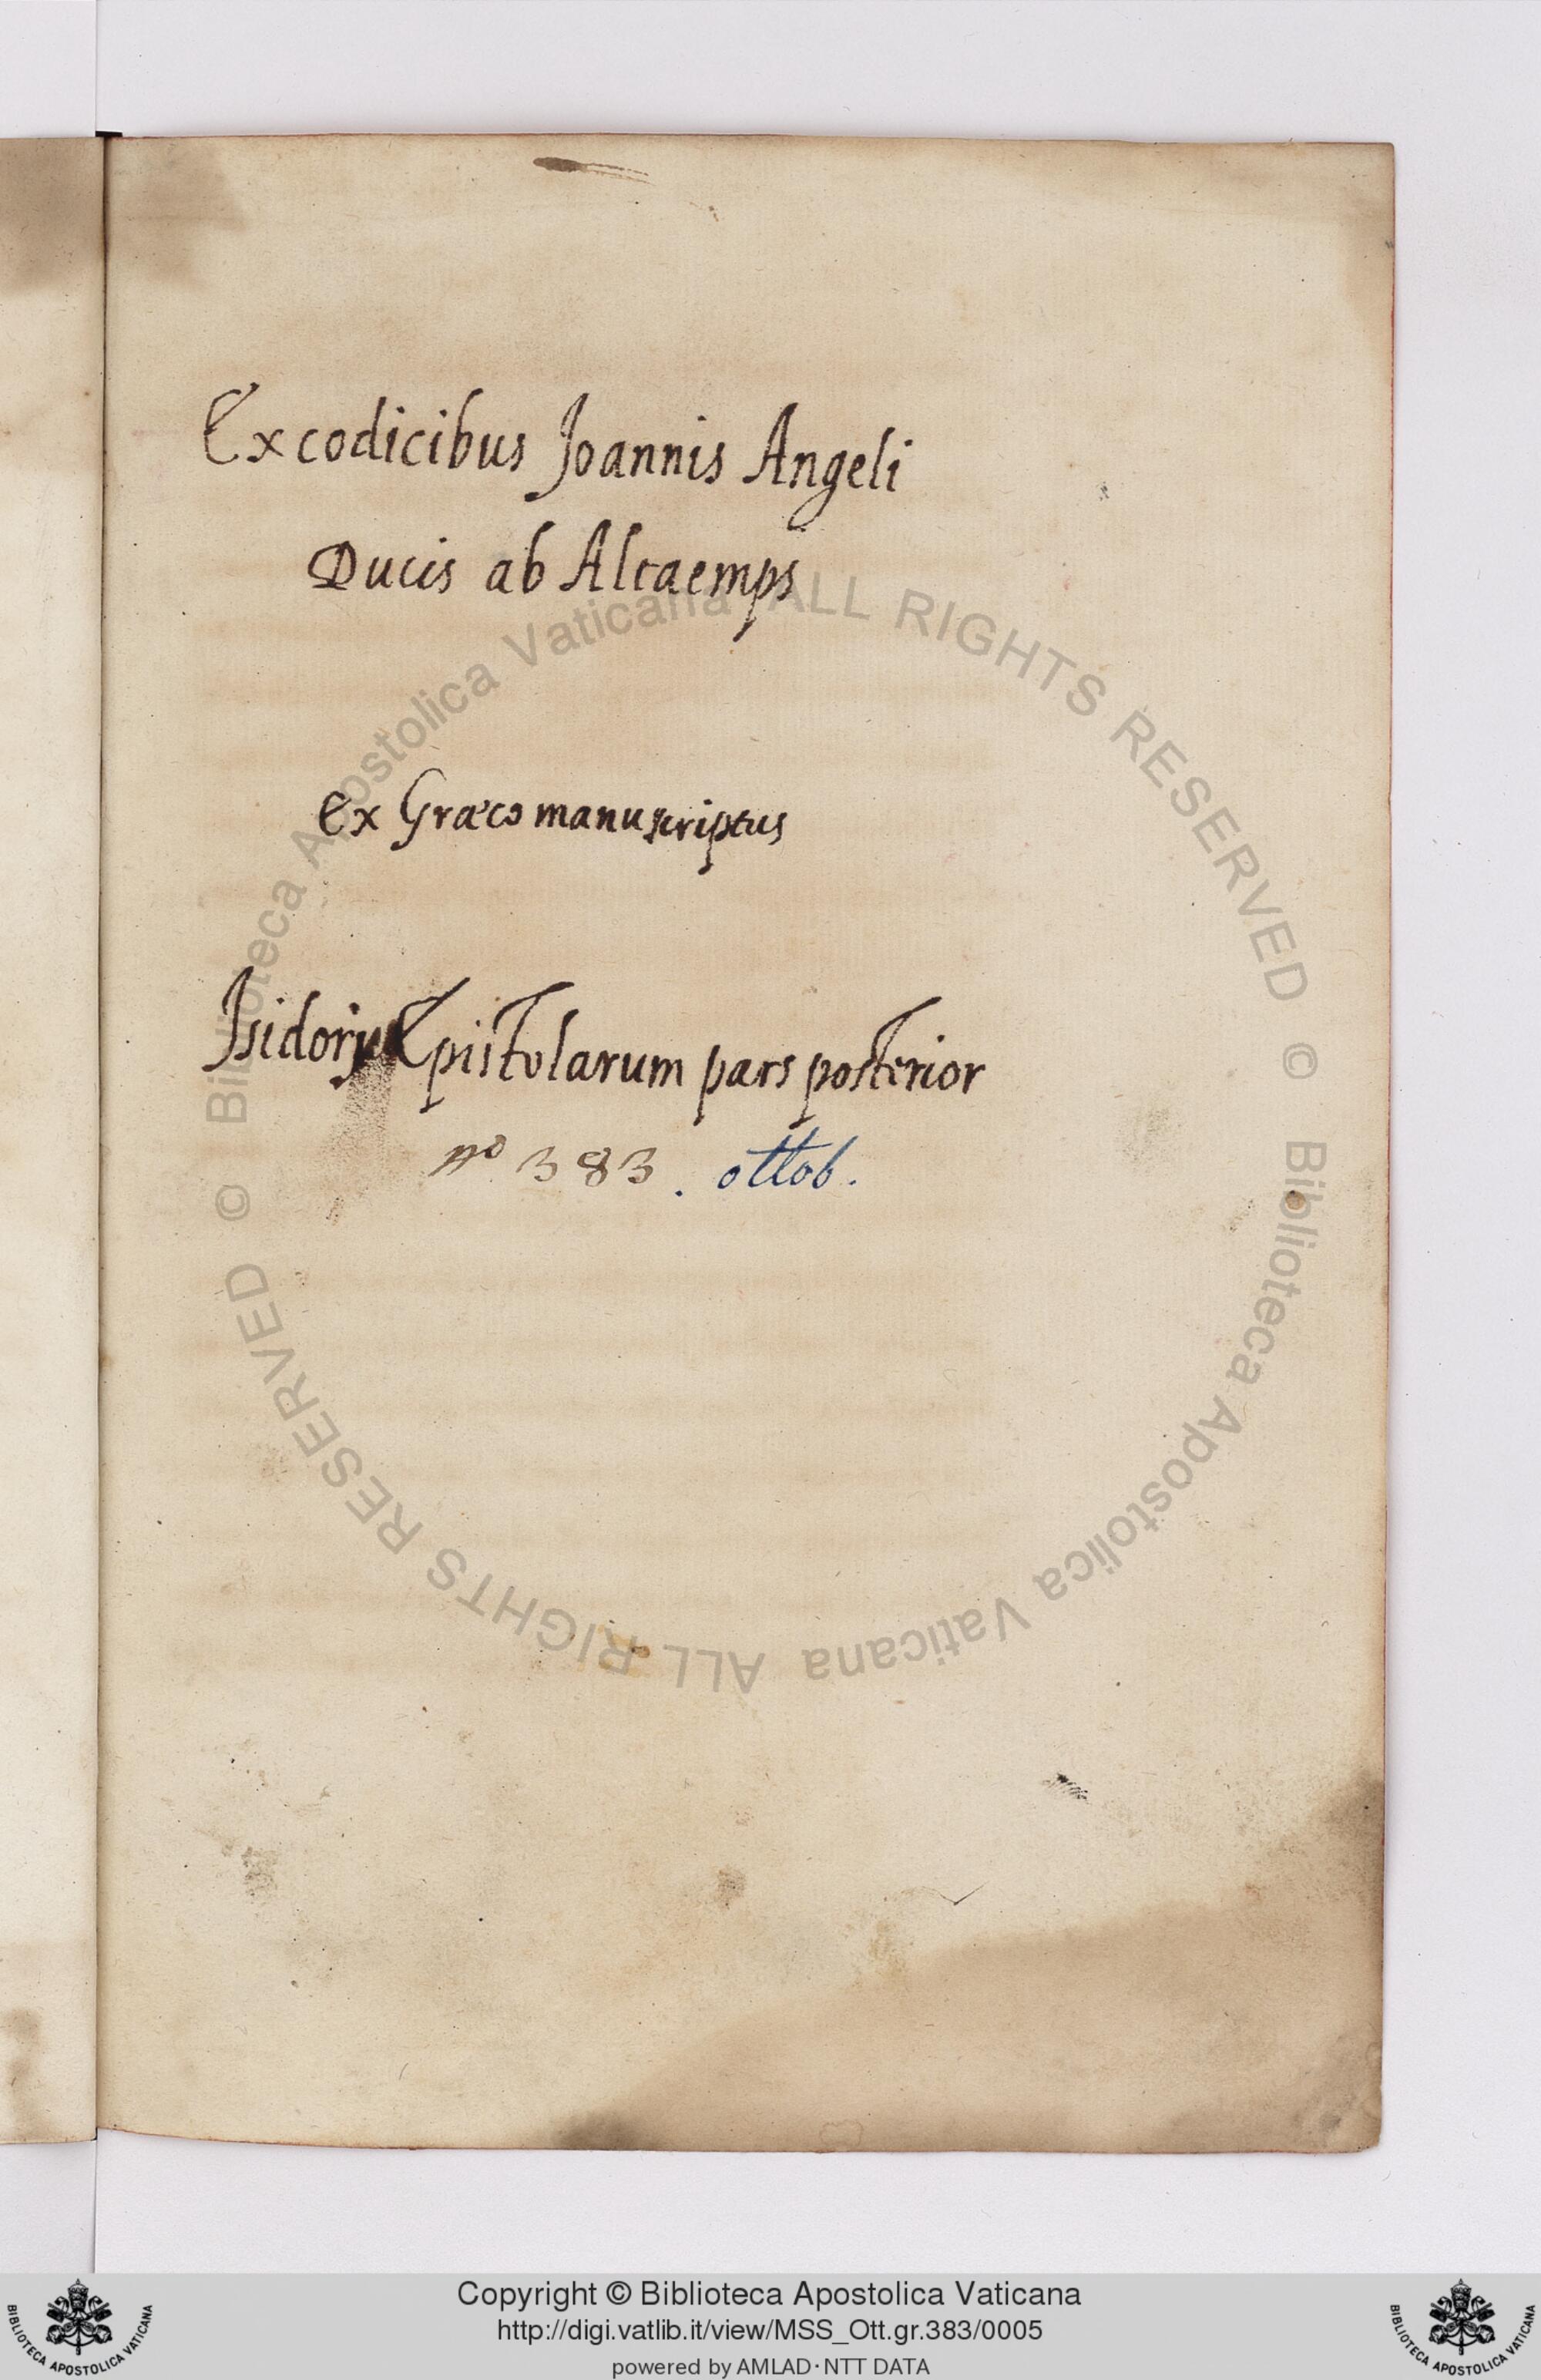 Ex codicibus Joannis Angeli
Ducis ab Altaemps
Ex Græco manuscriptus
Isidori Epistolarum pars posterior
nº 383. ottob.
© Biblioteca Apostolica Vaticana ALL RIGHTS RESERVED © Biblioteca Apostolica Vaticana ALL RIGHTS RESERVED
Copyright © Biblioteca Apostolica Vaticana
http://digi.vatlib.it/view/MSS_Ott.gr.383/0005
powered by AMLAD·NTT DATA
BIBLIOTECA APOSTOLICA VATICANA
BIBLIOTECA APOSTOLICA VATICANA